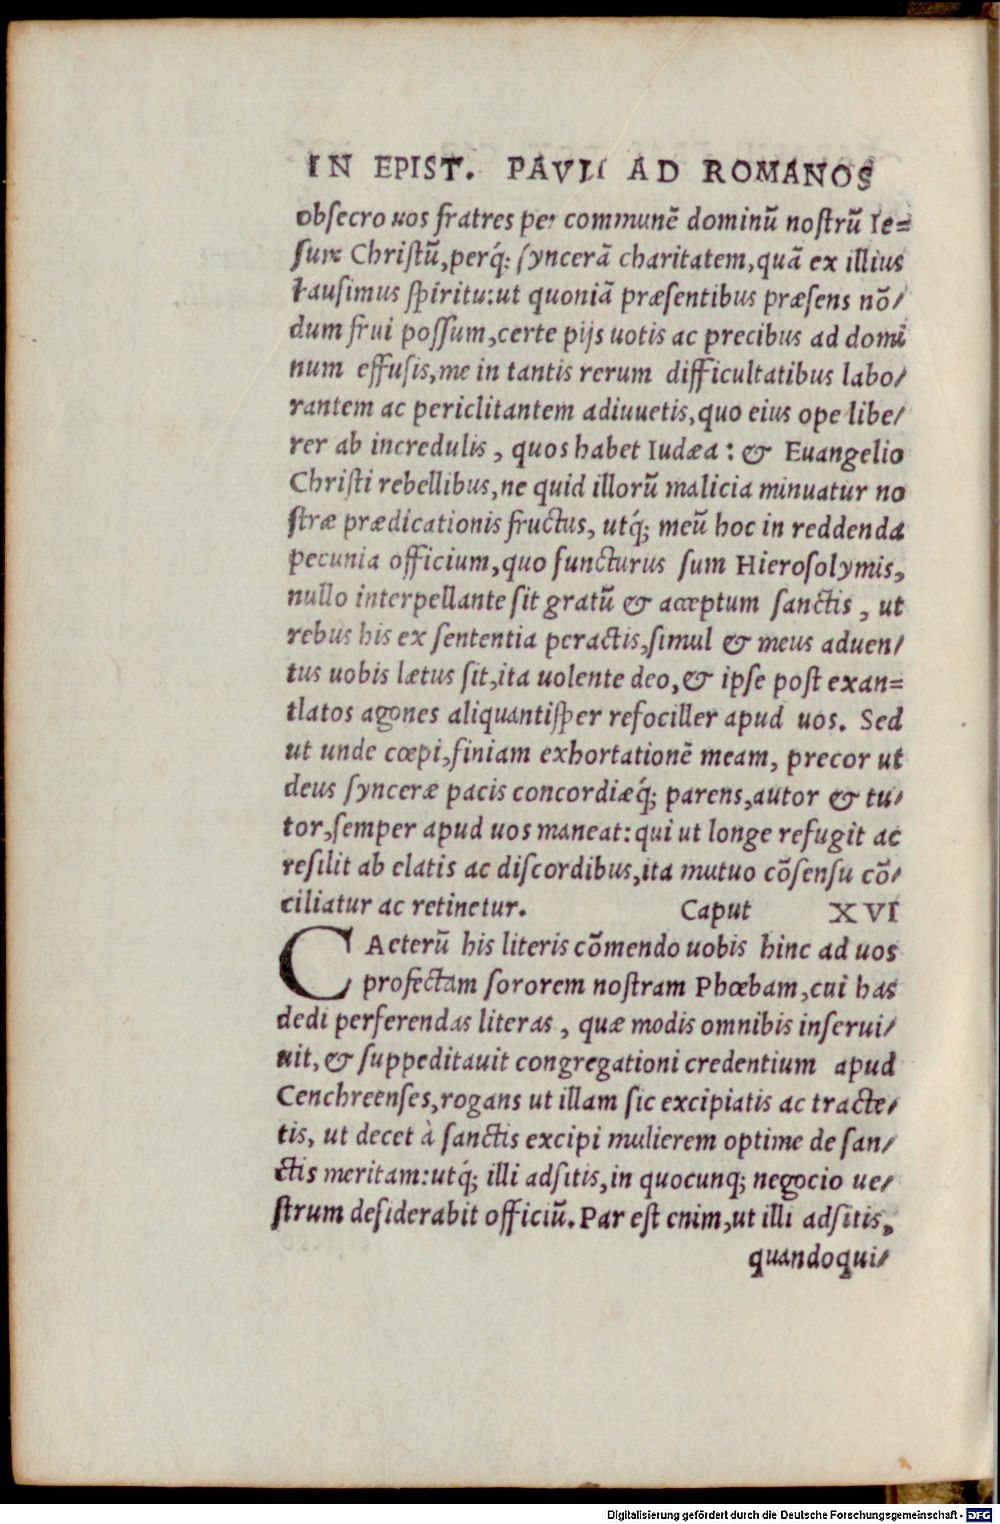 IN EPIST. PAVLI AD ROMANOS
obſecro uos fratres per communē dominū noſtrū Ie=
ſum Chriſtū,perq́; ſyncerā charitatem,quā ex illius
hauſimus ſpiritu:ut quoniā præſentibus præſens nō/
dum frui poſſum,certe pijs uotis ac precibus ad domi
num effuſis,me in tantis rerum difficultatibus labo/
rantem ac periclitantem adiuuetis,quo eius ope libe/
rer ab incredulis , quos habet Iudæa : & Euangelio
Chriſti rebellibus,ne quid illorū malicia minuatur no
ſtræ prædicationis fructus, utq́; meū hoc in reddenda
pecunia officium,quo functurus ſum Hieroſolymis,
nullo interpellante ſit gratū & acceptum ſanctis , ut
rebus his ex ſententia peractis,ſimul & meus aduen/
tus uobis lætus ſit,ita uolente deo,& ipſe poſt exan=
tlatos agones aliquantiſper refociller apud uos. Sed
ut unde cœpi,finiam exhortationē meam, precor ut
deus ſynceræ pacis concordiæq́; parens,autor & tu/
tor,ſemper apud uos maneat:qui ut longe refugit ac
reſilit ab elatis ac diſcordibus,ita mutuo cōſenſu cō/
ciliatur ac retinetur. Caput XVI
CAeterū his literis cōmendo uobis hinc ad uos
profectam ſororem noſtram Phœbam,cui has
dedi perferendas literas , quæ modis omnibis inſerui/
uit, & ſuppeditauit congregationi credentium apud
Cenchreenſes,rogans ut illam ſic excipiatis ac tracte/
tis, ut decet à ſanctis excipi mulierem optime de ſan/
ctis meritam:utq́; illi adſitis,in quocunq; negocio ue/
ſtrum deſiderabit officiū. Par eſt enim,ut illi adſitis,
quandoqui/
Digitalisierung gefördert durch die Deutsche Forschungsgemeinschaft - DFG